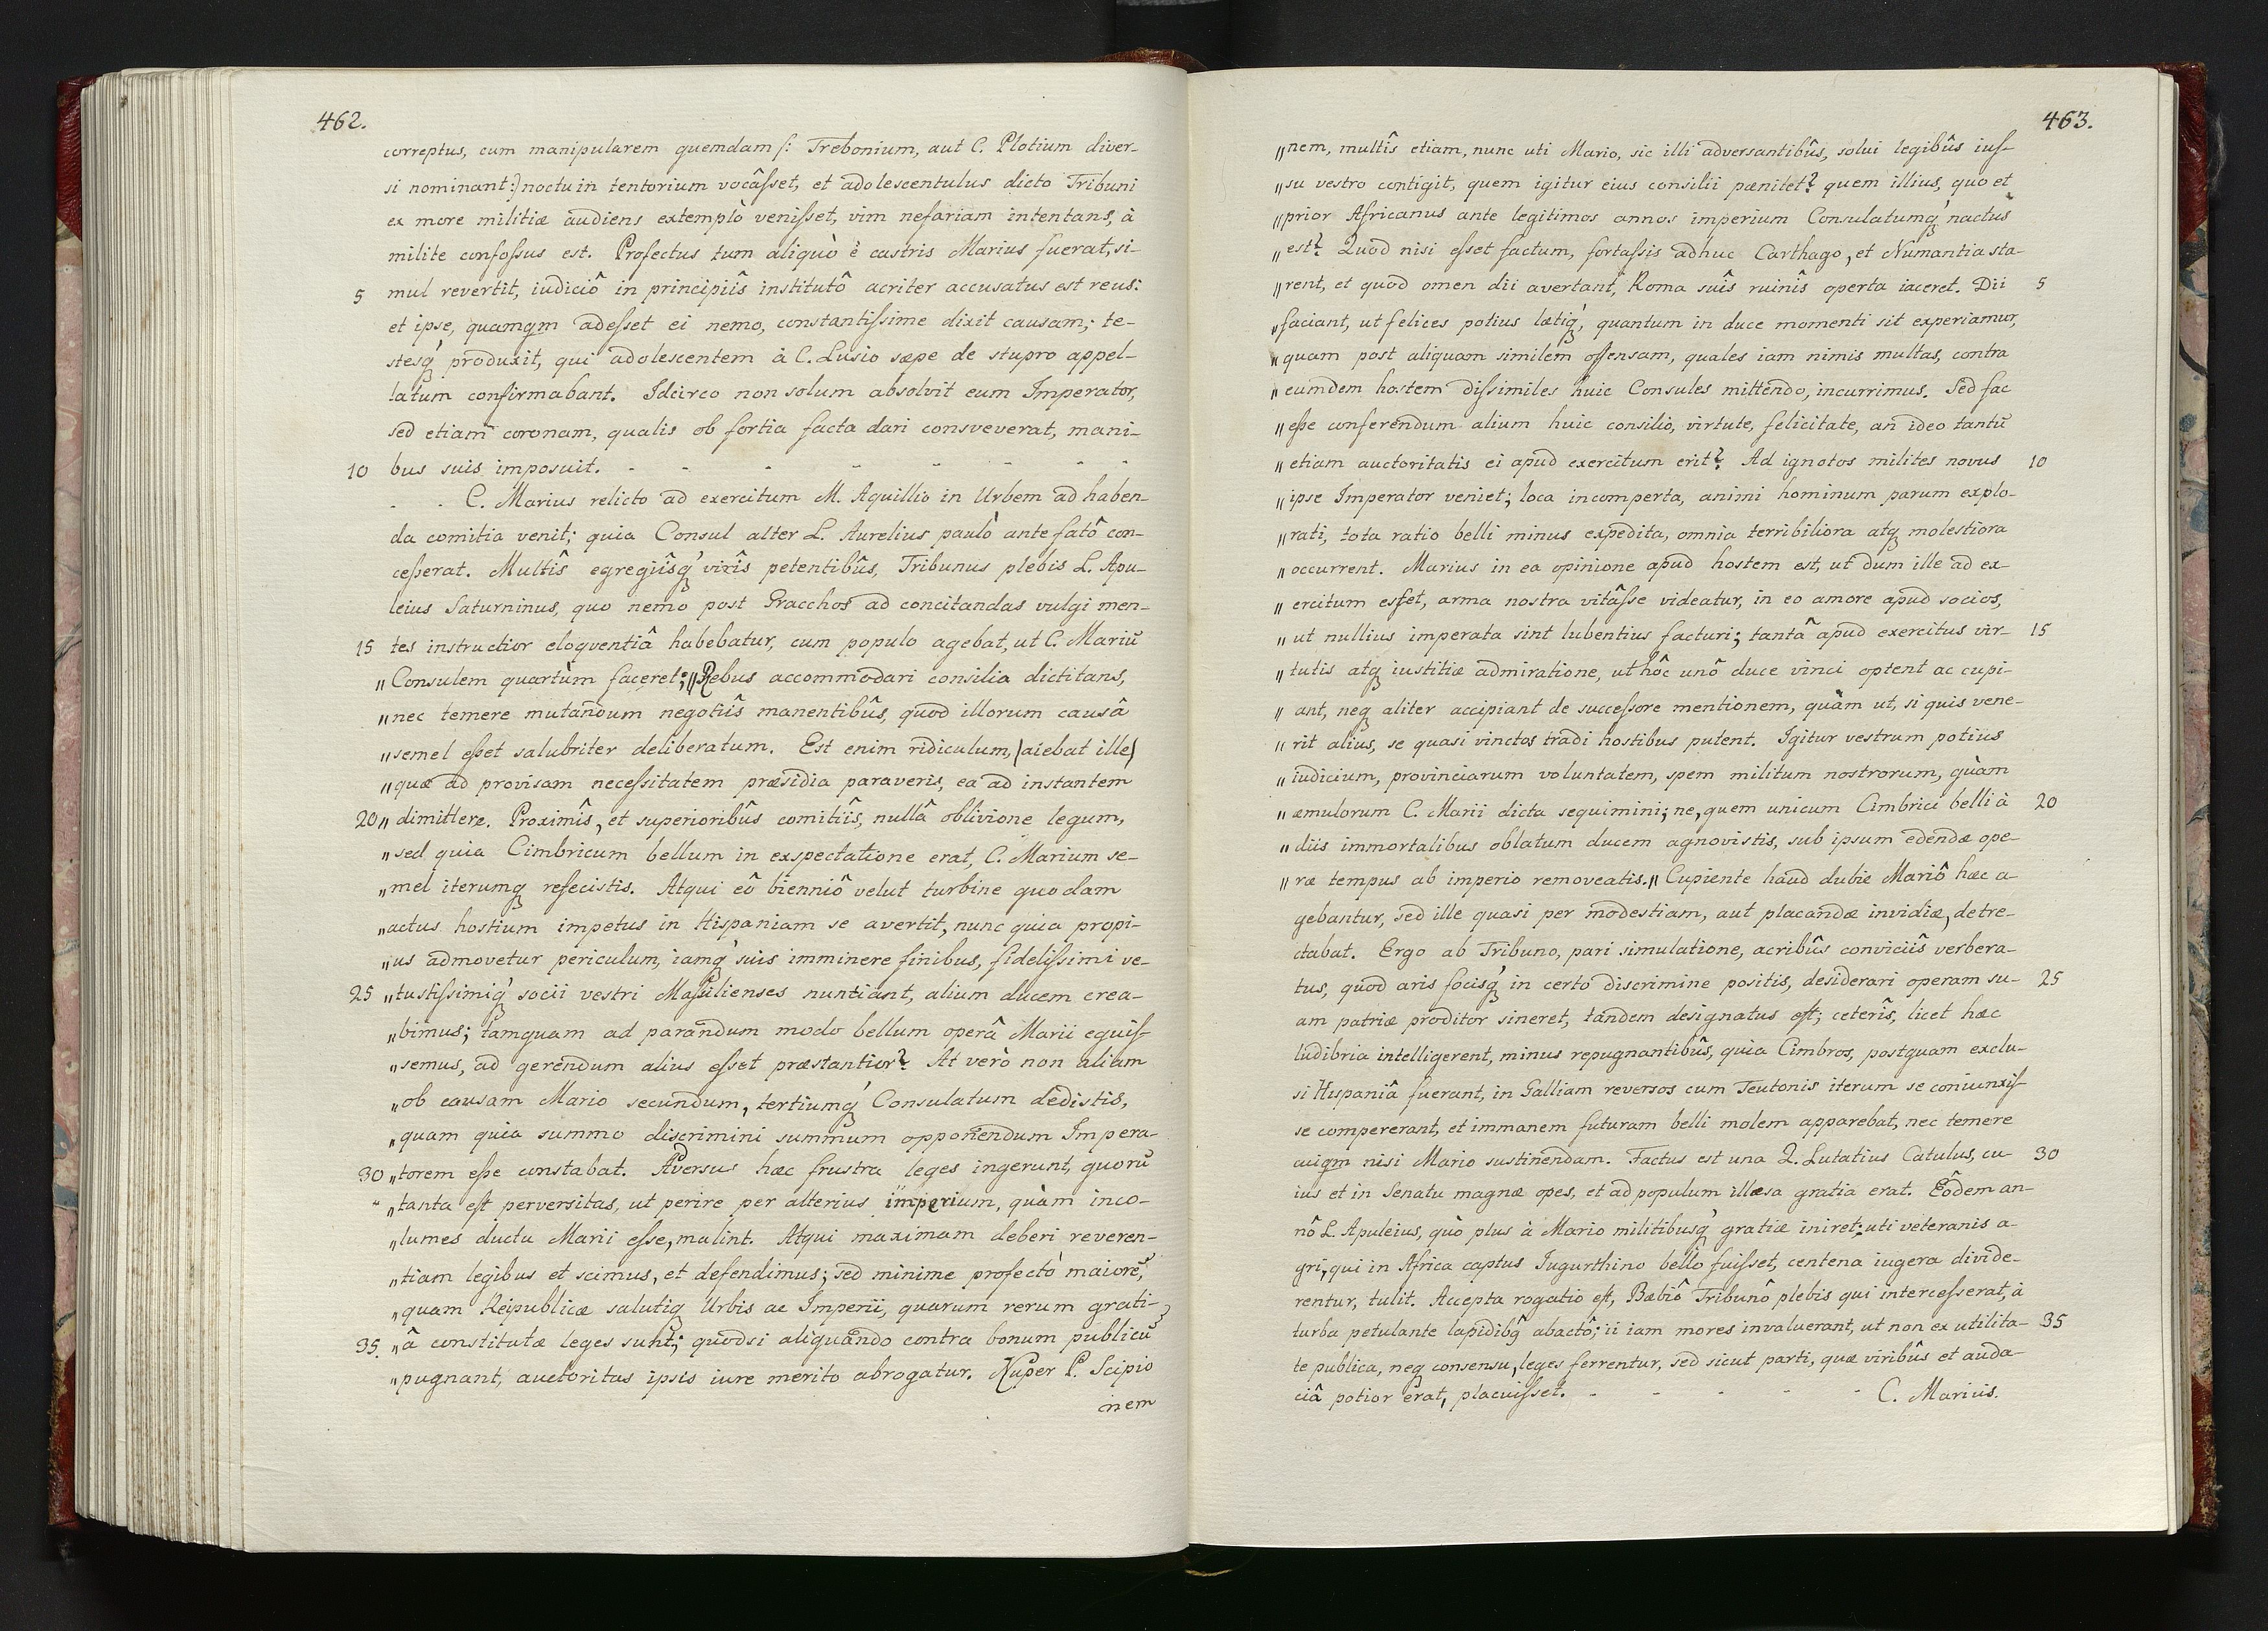 462.
correptus, cum manipularem quemdam /: Trebonium, aut C. Plotium diver-
si nominant:) noctu in tentorium vocâsset, et adolescentulus dicto Tribuni
ex more militiæ audiens extemplò venisset, vim nefariam intentans, à
milite confossus est. Profectus tum aliquò è castris Marius fuerat, si-
5 mul revertit, iudiciô in principiîs institutô acriter accusatus est reus:
et ipse, quamqm adesset ei nemo, constantissime dixit causam; te-
stesq́ produxit, qui adolescentem à C. Lusio sæpe de stupro appel-
latum confirmabant. Idcirco non solum absolvit eum Imperator,
sed etiam coronam, qualis ob fortia facta dari consveverat, mani-
10 bus suis imposuit. - - - - - - - -
- - C. Marius relicto ad exercitum M. Aquillio in Urbem ad haben-
da comitia venit; quia Consul alter L. Aurelius paulò ante fatô con-
cesserat. Multîs egregiîsq́ virîs petentibûs, Tribunus plebis L. Apu-
leius Saturninus, quo nemo post Gracchos ad concitandas vulgi men-
15 tes instructior eloqventiâ habebatur, cum populo agebat, ut C. Mariū
„ Consulem quartùm faceret; „Rebus accommodari consilia dictitans,
„ nec temere mutandum negotiîs manentibûs, quod illorum causâ
„ semel esset salubriter deliberatum. Est enim ridiculum, (aiebat ille)
„ quæ ad provisam necessitatem præsidia paraveris, ea ad instantem
20 „ dimittere. Proximîs, et superioribûs comitiîs, nullâ oblivione legum,
„ sed quia Cimbricum bellum in exspectatione erat, C. Marium se-
„ mel iterumq refecistis. Atqui eô bienniô velut turbine quodam
„ actus hostium impetus in Hispaniam se avertit, nunc quia propi-
„ us admovetur periculum, iamq́ suis imminere finibus, fidelissimi ve-
25 „ tustissimiq́ socii vestri Massilienses nuntiant, alium ducem crea-
„ bimus; tamquam ad parandum modo bellum operâ Marii eguis-
„ semus, ad gerendum alius esset præstantior? At verò non aliam
„ ob causam Mario secundum, tertiumq́ Consulatum dedistis,
„ quam quia summo discrimini summum opponendum Impera-
30 „ torem esse constabat. Adversus hæc frustra leges ingerunt, quorū
„ tanta est perversitas, ut perire per alterius imperium, quàm inco-
„ lumes ductu Marii esse, malint. Atqui maximam deberi reveren-
„ tiam legibus et scimus, et defendimus; sed minime profectò maiorē,
„ quam Reipublicæ salutiq Urbis ac Imperii, quarum rerum grati-
35. „ â constitutæ leges sunt; quodsi aliquando contra bonum publicū
„ pugnant, auctoritas ipsis iure merito abrogatur. Nuper P. Scipio
nem
463.
„ nem, multîs etiam, nunc uti Mario, sic illi adversantibûs, solui legibûs ius-
„ su vestro contigit, quem igitur eius consilii pænitet? quem illius, quo et
„ prior Africanus ante legitimos annos imperium Consulatumq́ nactus
„ est? Quod nisi esset factum, fortassis adhuc Carthago, et Numantia sta-
„ rent, et quod omen dii avertant, Roma suîs ruinîs operta iaceret. Dii 5
„ faciant, ut felices potius lætiq́, quantum in duce momenti sit experiamur,
„ quam post aliquam similem offensam, quales iam nimis multas, contra
„ eumdem hostem dissimiles huic Consules mittendo, incurrimus. Sed fac
„ esse conferendum alium huic consilio, virtute, felicitate, an ideo tantū
„ etiam auctoritatis ei apud exercitum erit? Ad ignotos milites novus 10
„ ipse Imperator veniet; loca incomperta, animi hominum parum explo-
„ rati, tota ratio belli minus expedita, omnia terribiliora atq molestiora
„ occurrent. Marius in ea opinione apud hostem est, ut dum ille ad ex-
„ ercitum esset, arma nostra vitâsse videatur, in eo amore apud socios,
„ ut nullius imperata sint lubentius facturi; tantâ apud exercitus vir- 15
„ tutis atq iustitiæ admiratione, ut hôc unô duce vinci optent ac cupi-
„ ant, neq aliter accipiant de successore mentionem, quàm ut, si quis vene-
„ rit alius, se quasi vinctos tradi hostibus putent. Igitur vestrum potius
„ iudicium, provinciarum voluntatem, spem militum nostrorum, quàm
„ æmulorum C. Marii dicta sequimini; ne, quem unicum Cimbrici belli à 20
„ diis immortalibus oblatum ducem agnovistis, sub ipsum edendæ ope-
„ ræ tempus ab imperio removeatis. „ Cupiente haud dubie Mariô hæc a-
gebantur, sed ille quasi per modestiam, aut placandæ invidiæ, detre-
ctabat. Ergo ab Tribuno, pari simulatione, acribûs conviciîs verbera-
tus, quod aris focisq́ in certo discrimine positis, desiderari operam su- 25
am patriæ proditor sineret, tandem designatus est; ceterîs, licet hæc
ludibria intelligerent, minus repugnantibûs, quia Cimbros, postquam exclu-
si Hispaniâ fuerant, in Galliam reversos cum Teutonis iterum se coniunxis-
se compererant, et immanem futuram belli molem apparebat, nec temere
cuiqm nisi Mario sustinendam. Factus est una Q. Lutatius Catulus, cu- 30
ius et in Senatu magnæ opes, et ad populum illæsa gratia erat. Eôdem an-
nô L. Apuleius, quò plus à Mario militibusq́ gratiæ iniret, uti veteranis a-
gri, qui in Africa captus Iugurthino bello fuisset, centena iugera divide-
rentur, tulit. Accepta rogatio est, Bæbiô Tribunô plebis qui intercesserat, à
turba petulante lapidibq̂ abactô; ii iam mores invaluerant, ut non ex utilita- 35
te publica, neq consensu, leges ferrentur, sed sicut parti, quæ viribûs et auda-
ciâ potior erat, placuisset. - - - - - C. Marius.